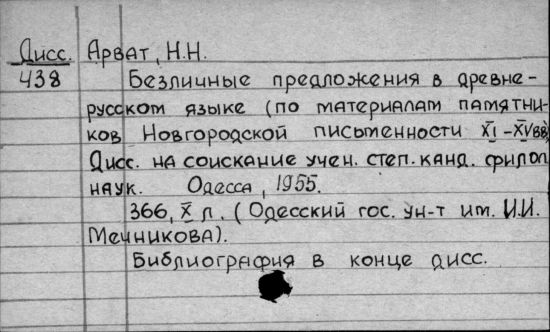 Дисс. Арват, Н.Н.
438 Безличные предложения в древне-
русском языке (по материалам памятни-
ков Новгородской письменности XI-XVвв)
Дисс. на соискание учен. степ. канд. филол
наук. Одесса, 1955.
366, X л. (Одесский гос. ун-т им. И.И.
Мечникова).
Библиография в конце дисс.